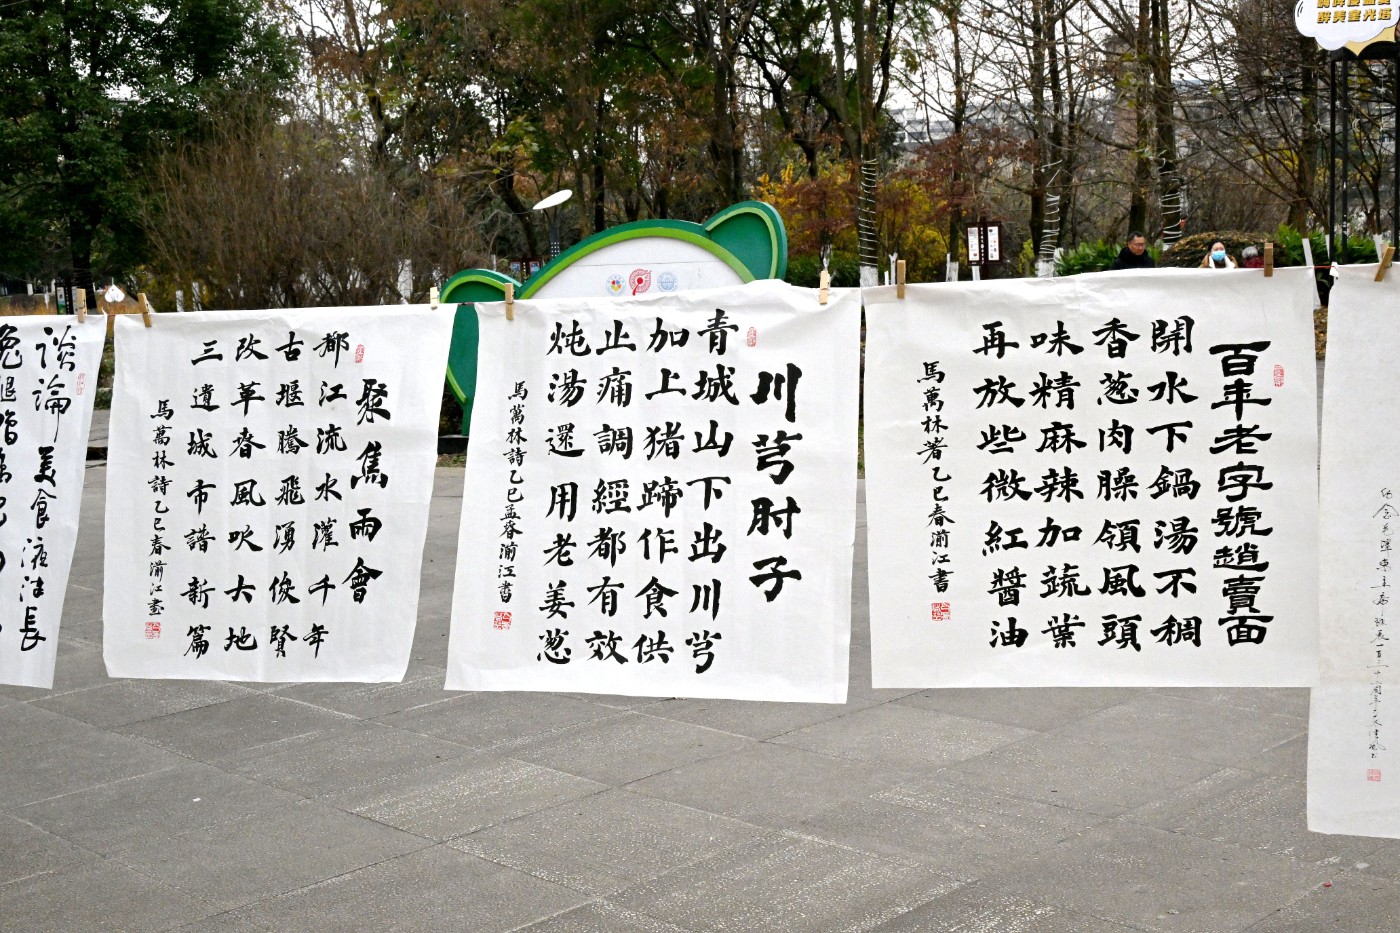 百年老字號趙賣面
開水下鍋湯不稠
香葱肉臊領風頭
味精麻辣加蔬葉
再放些微紅醬油
馬萬林著乙巳春湔江書
川芎肘子
青城山下出川芎
加上猪蹄作食供
止痛調經都有效
炖湯還用老姜葱
馬萬林詩乙巳孟春湔江書
聚焦兩會
都江流水灌千年
古堰騰飛湧俊賢
改革春風吹大地
三遺城市譜新篇
馬萬林詩乙巳春湔江書
談論美食液津長